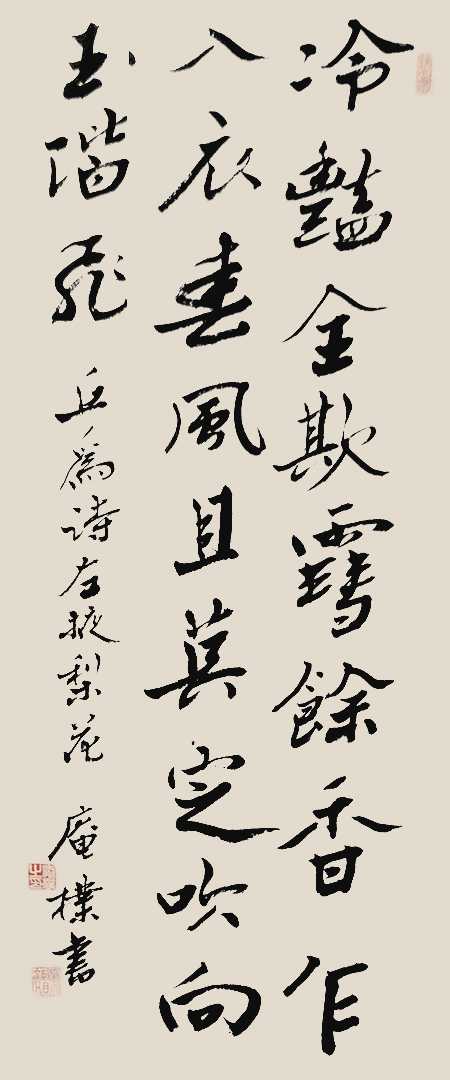 冷豔全欺雪餘香乍
入衣春風且莫定吹向
玉階飛 丘爲詩左掖梨花 庵樸書